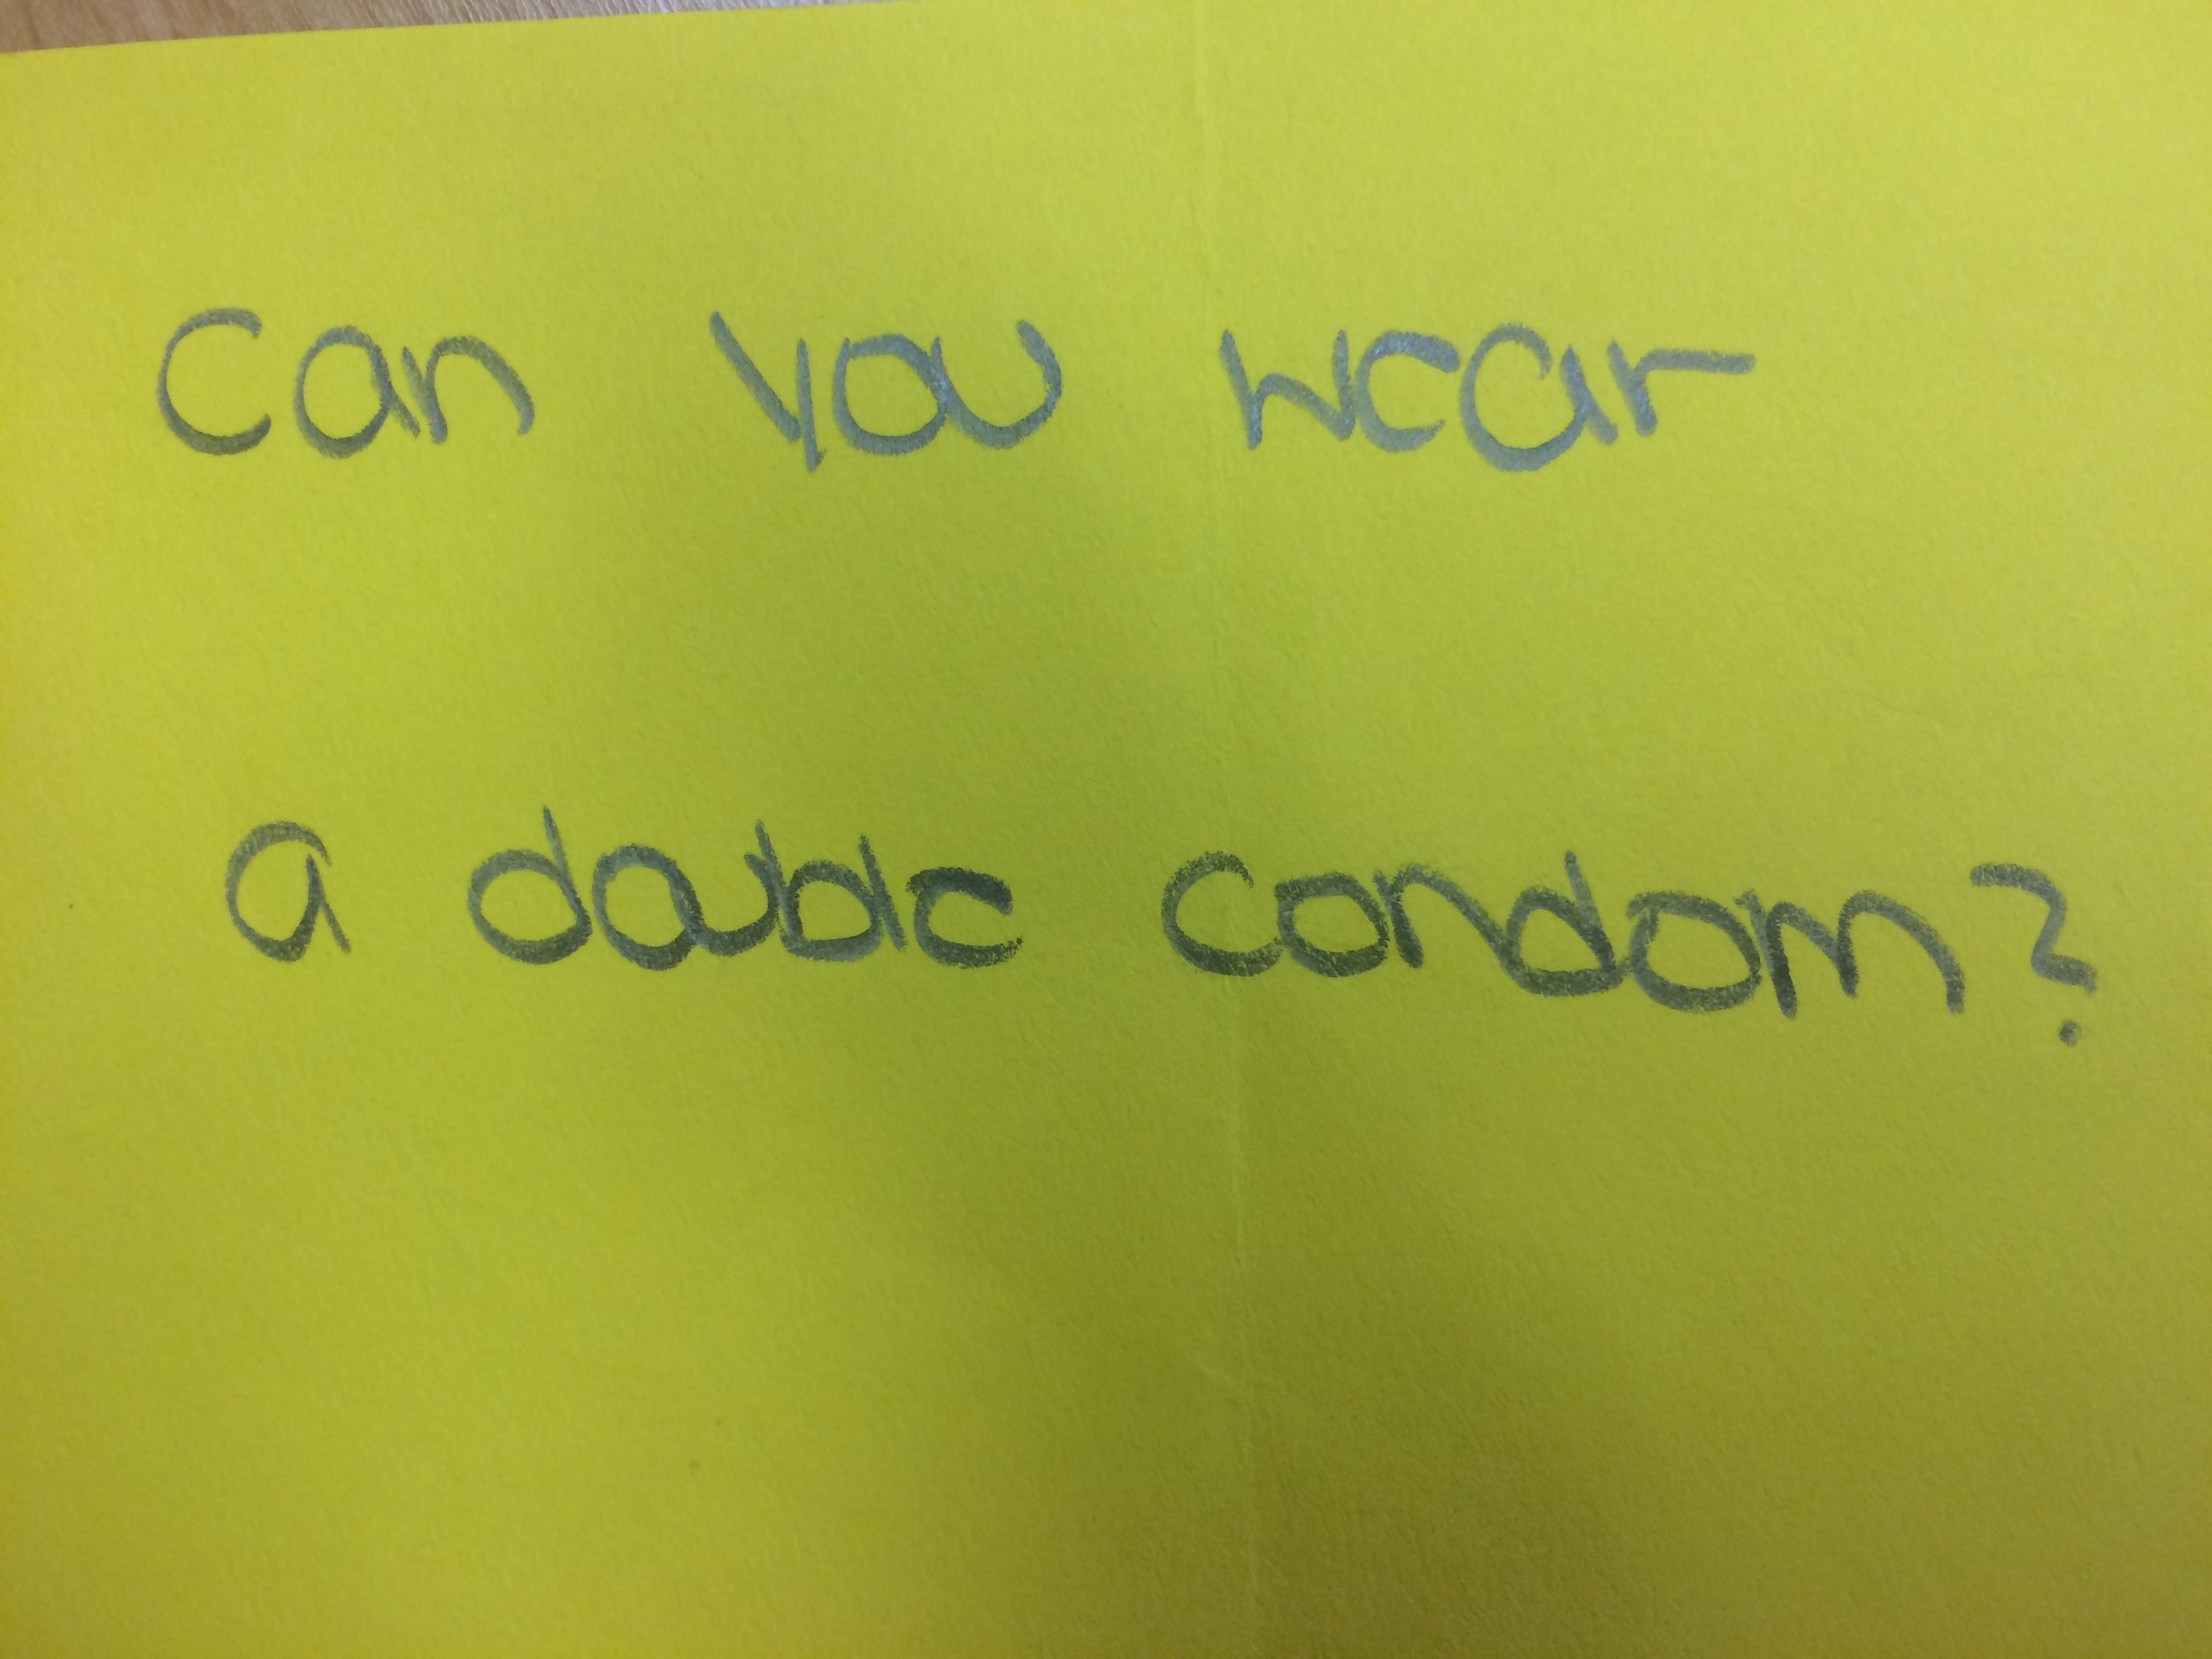 Can you wear
a double condom?